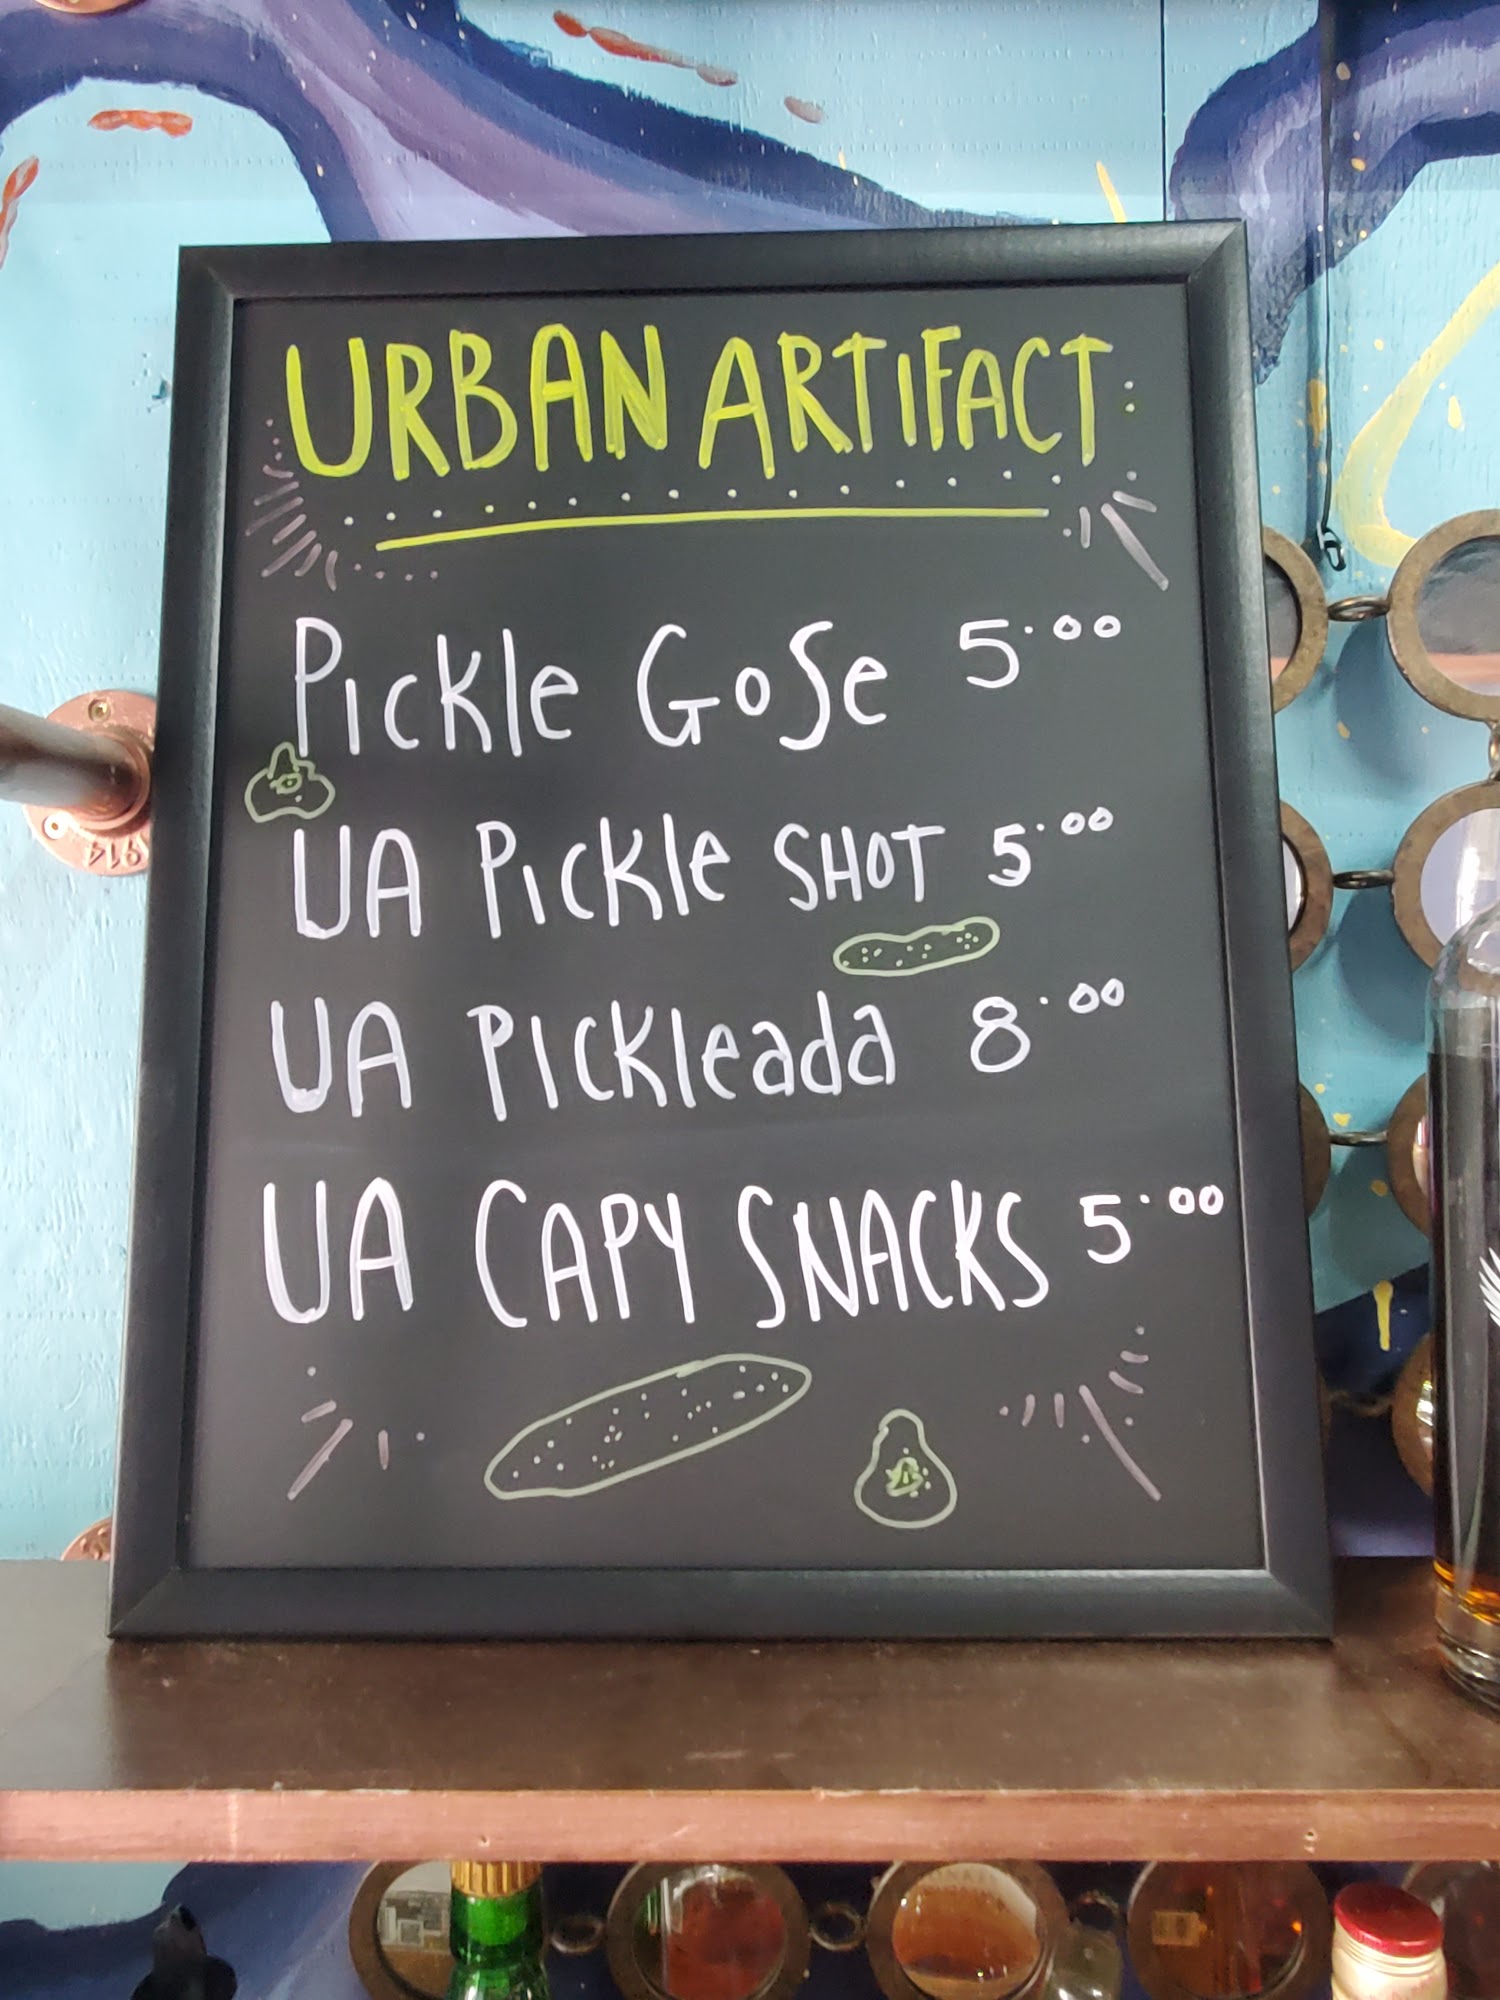 URBAN ARTIFACT
Pickle Gose 5.00
UA Pickle SHOT 5.00
UA Pickleada 8.00
UA CAPY SNACKS 5.00
914